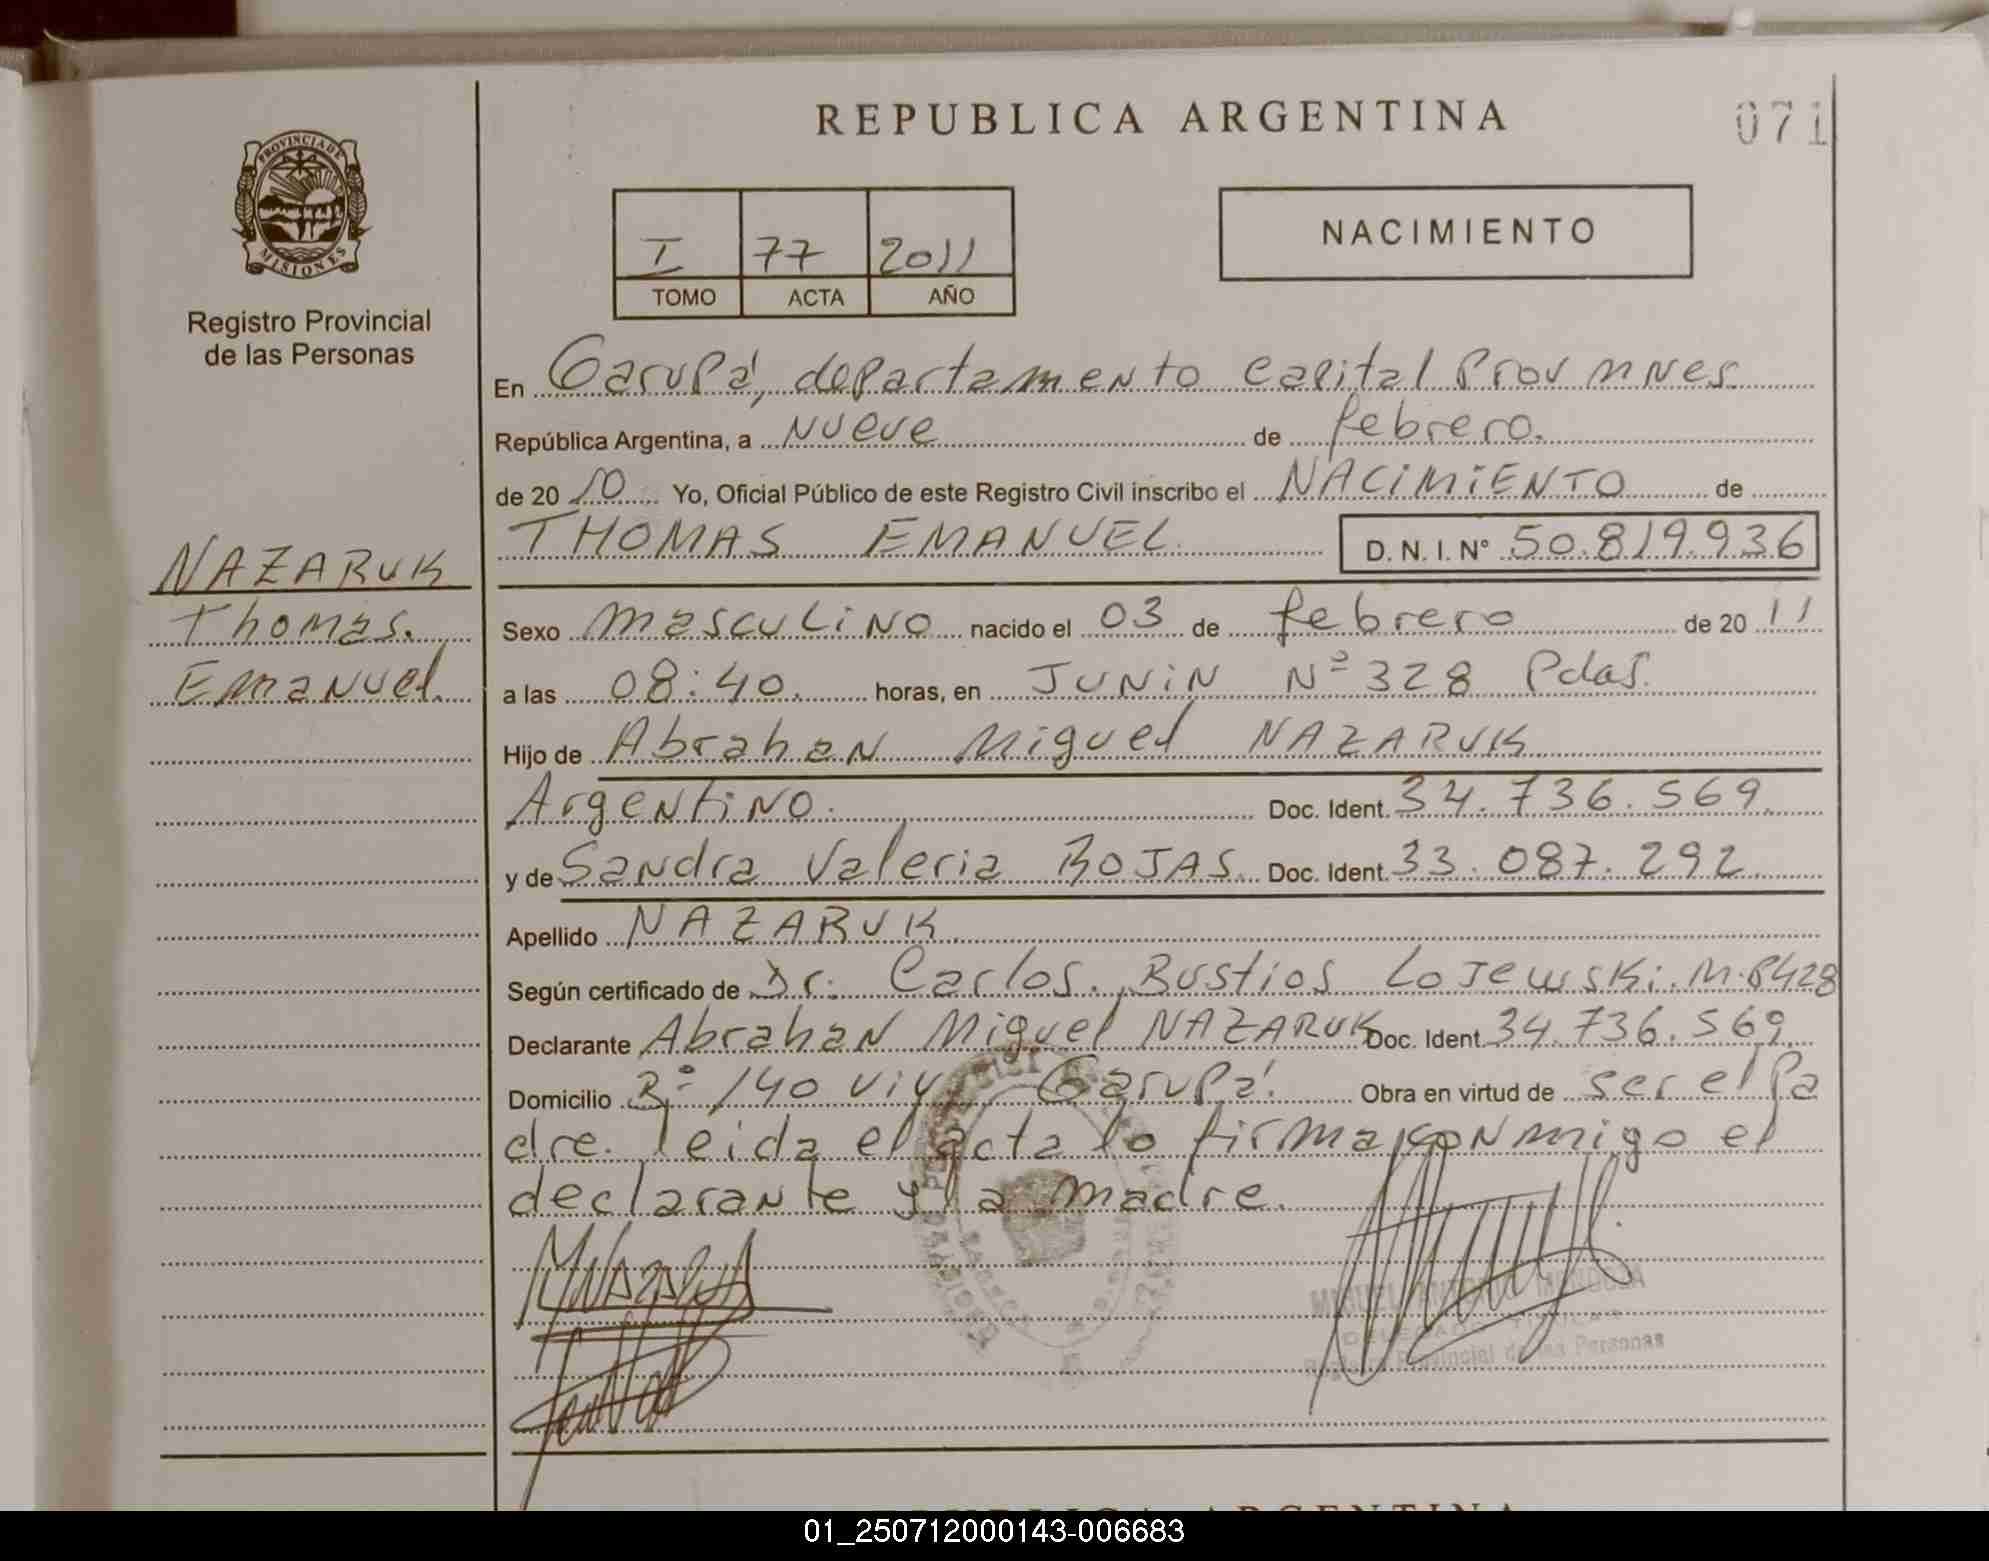 REPUBLICA ARGENTINA
071
PROVINCIA DE
MISIONES
Registro Provincial
de las Personas
I 77 2011
TOMO ACTA AÑO
NACIMIENTO
En Garupá, departamento Capital Prov mnes.
República Argentina, a Nueve de febrero.
de 20 10 Yo, Oficial Público de este Registro Civil inscribo el NACIMIENTO de
THOMAS EMANUEL D. N. I. N° 50.819.936
NAZARUK
Thomas.
Emanuel.
Sexo masculino nacido el 03 de febrero de 20 11
a las 08:40. horas, en JUNIN Nº 328 Pdas.
Hijo de Abrahan Miguel NAZARUK
Argentino. Doc. Ident. 34.736.569.
y de Sandra Valeria ROJAS. Doc. Ident. 33.087.292.
Apellido NAZARUK
Según certificado de Dr. Carlos. Bustios Lojewski. M.P428
Declarante Abrahan Miguel NAZARUK Doc. Ident. 34.736.569.
Domicilio Bº 140 viv Garupá. Obra en virtud de ser el Pa
dre. leida el acta lo firma conmigo el
declarante y la madre.
MIGUEL ANTONIO MENDOZA
DELEGADO TITULAR
Registro Provincial de las Personas
REPUBLICA ARGENTINA
01_250712000143-006683